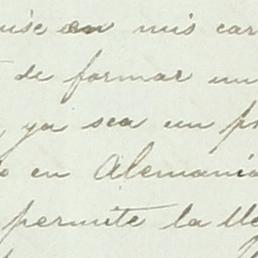 uise en mis car
de formar un
, ya sea un p
o en Alemania
permite la lle